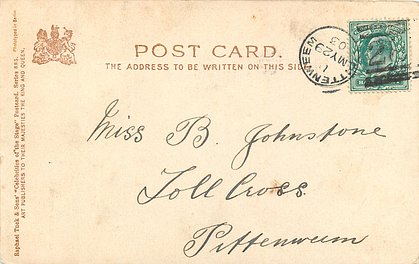 POST CARD.
THE ADDRESS TO BE WRITTEN ON THIS SIDE
PITTENWEEM
MY 29
03
Miss B. Johnstone
Toll Cross.
Pittenweem
Raphael Tuck & Sons' "Celebrities of the Stage" Postcard, Series
ART PUBLISHERS TO THEIR MAJESTIES THE KING AND QUEEN.